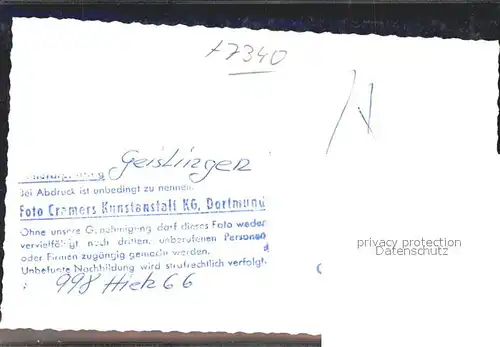 +7340
Geislingen
Bei Abdruck ist unbedingt zu nennen:
Foto Cramers Kunstanstalt KG, Dortmund
Ohne unsere Genehmigung darf dieses Foto weder
vervielfältigt noch dritten, unberufenen Personen
oder Firmen zugängig gemacht werden.
Unbefugte Nachbildung wird strafrechtlich verfolgt.
998 66
privacy protection
Datenschutz